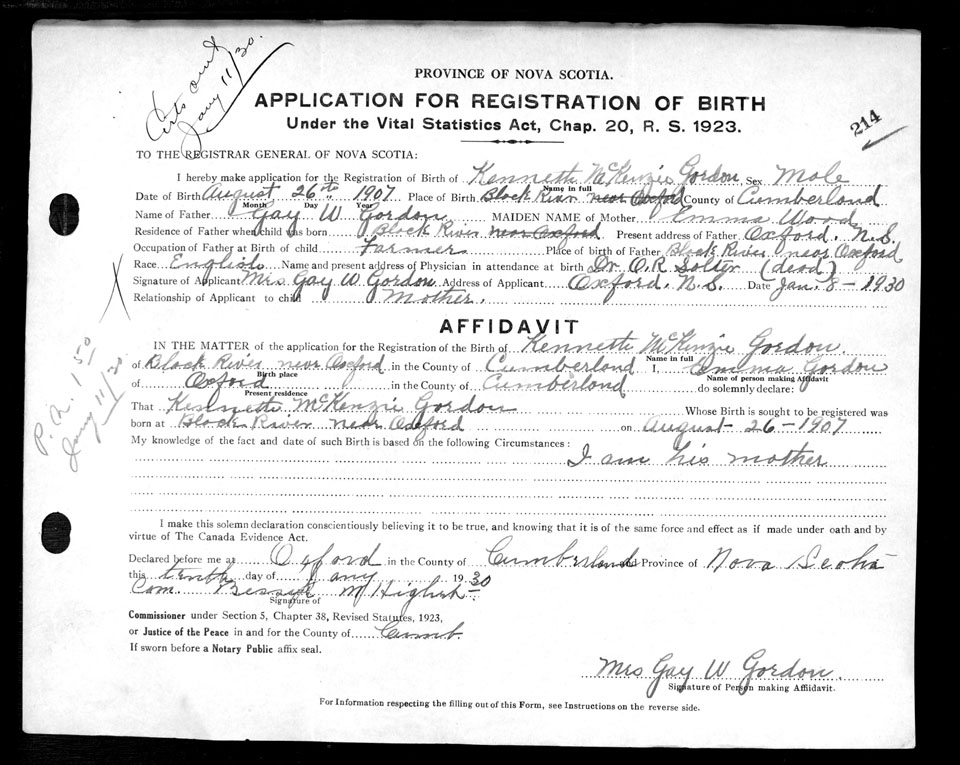 Certs out
Jany 11/30.
PROVINCE OF NOVA SCOTIA.
APPLICATION FOR REGISTRATION OF BIRTH
Under the Vital Statistics Act, Chap. 20, R. S. 1923.
214
TO THE REGISTRAR GENERAL OF NOVA SCOTIA:
I hereby make application for the Registration of Birth of Kenneth McKenzie Gordon Sex Male
Name in full
Date of Birth August 26th 1907 Place of Birth Black River near Oxford County of Cumberland
Month Day Year
Name of Father Gay W Gordon MAIDEN NAME of Mother Emma Wood
Residence of Father when child was born Black River near Oxford. Present address of Father Oxford. N.S.
Occupation of Father at Birth of child Farmer Place of birth of Father Black River near Oxford
Race English Name and present address of Physician in attendance at birth Dr. O.R. Solter (dead)
Signature of Applicant Mrs Gay W Gordon Address of Applicant Oxford. N.S. Date Jan. 8 - 1930
Relationship of Applicant to child Mother.
AFFIDAVIT
IN THE MATTER of the application for the Registration of the Birth of Kenneth McKenzie Gordon.
Name in full
of Black River near Oxford in the County of Cumberland I, Emma Gordon
Birth place Name of person making Affidavit
of Oxford in the County of Cumberland do solemnly declare:
Present residence
That Kenneth McKenzie Gordon Whose Birth is sought to be registered was
born at Black River near Oxford on August 26 - 1907
My knowledge of the fact and date of such Birth is based on the following Circumstances:
I am his mother
P. N. 1 50
Jany 11/30
I make this solemn declaration conscientiously believing it to be true, and knowing that it is of the same force and effect as if made under oath and by
virtue of The Canada Evidence Act.
Declared before me at Oxford in the County of Cumberland Province of Nova Scotia
this tenth day of Jany 1930
Com. Bessie
Signature of
Commissioner under Section 5, Chapter 38, Revised Statutes, 1923,
or Justice of the Peace in and for the County of Cumb.
If sworn before a Notary Public affix seal.
Mrs Gay W Gordon.
Signature of Person making Affidavit.
For Information respecting the filling out of this Form, see Instructions on the reverse side.